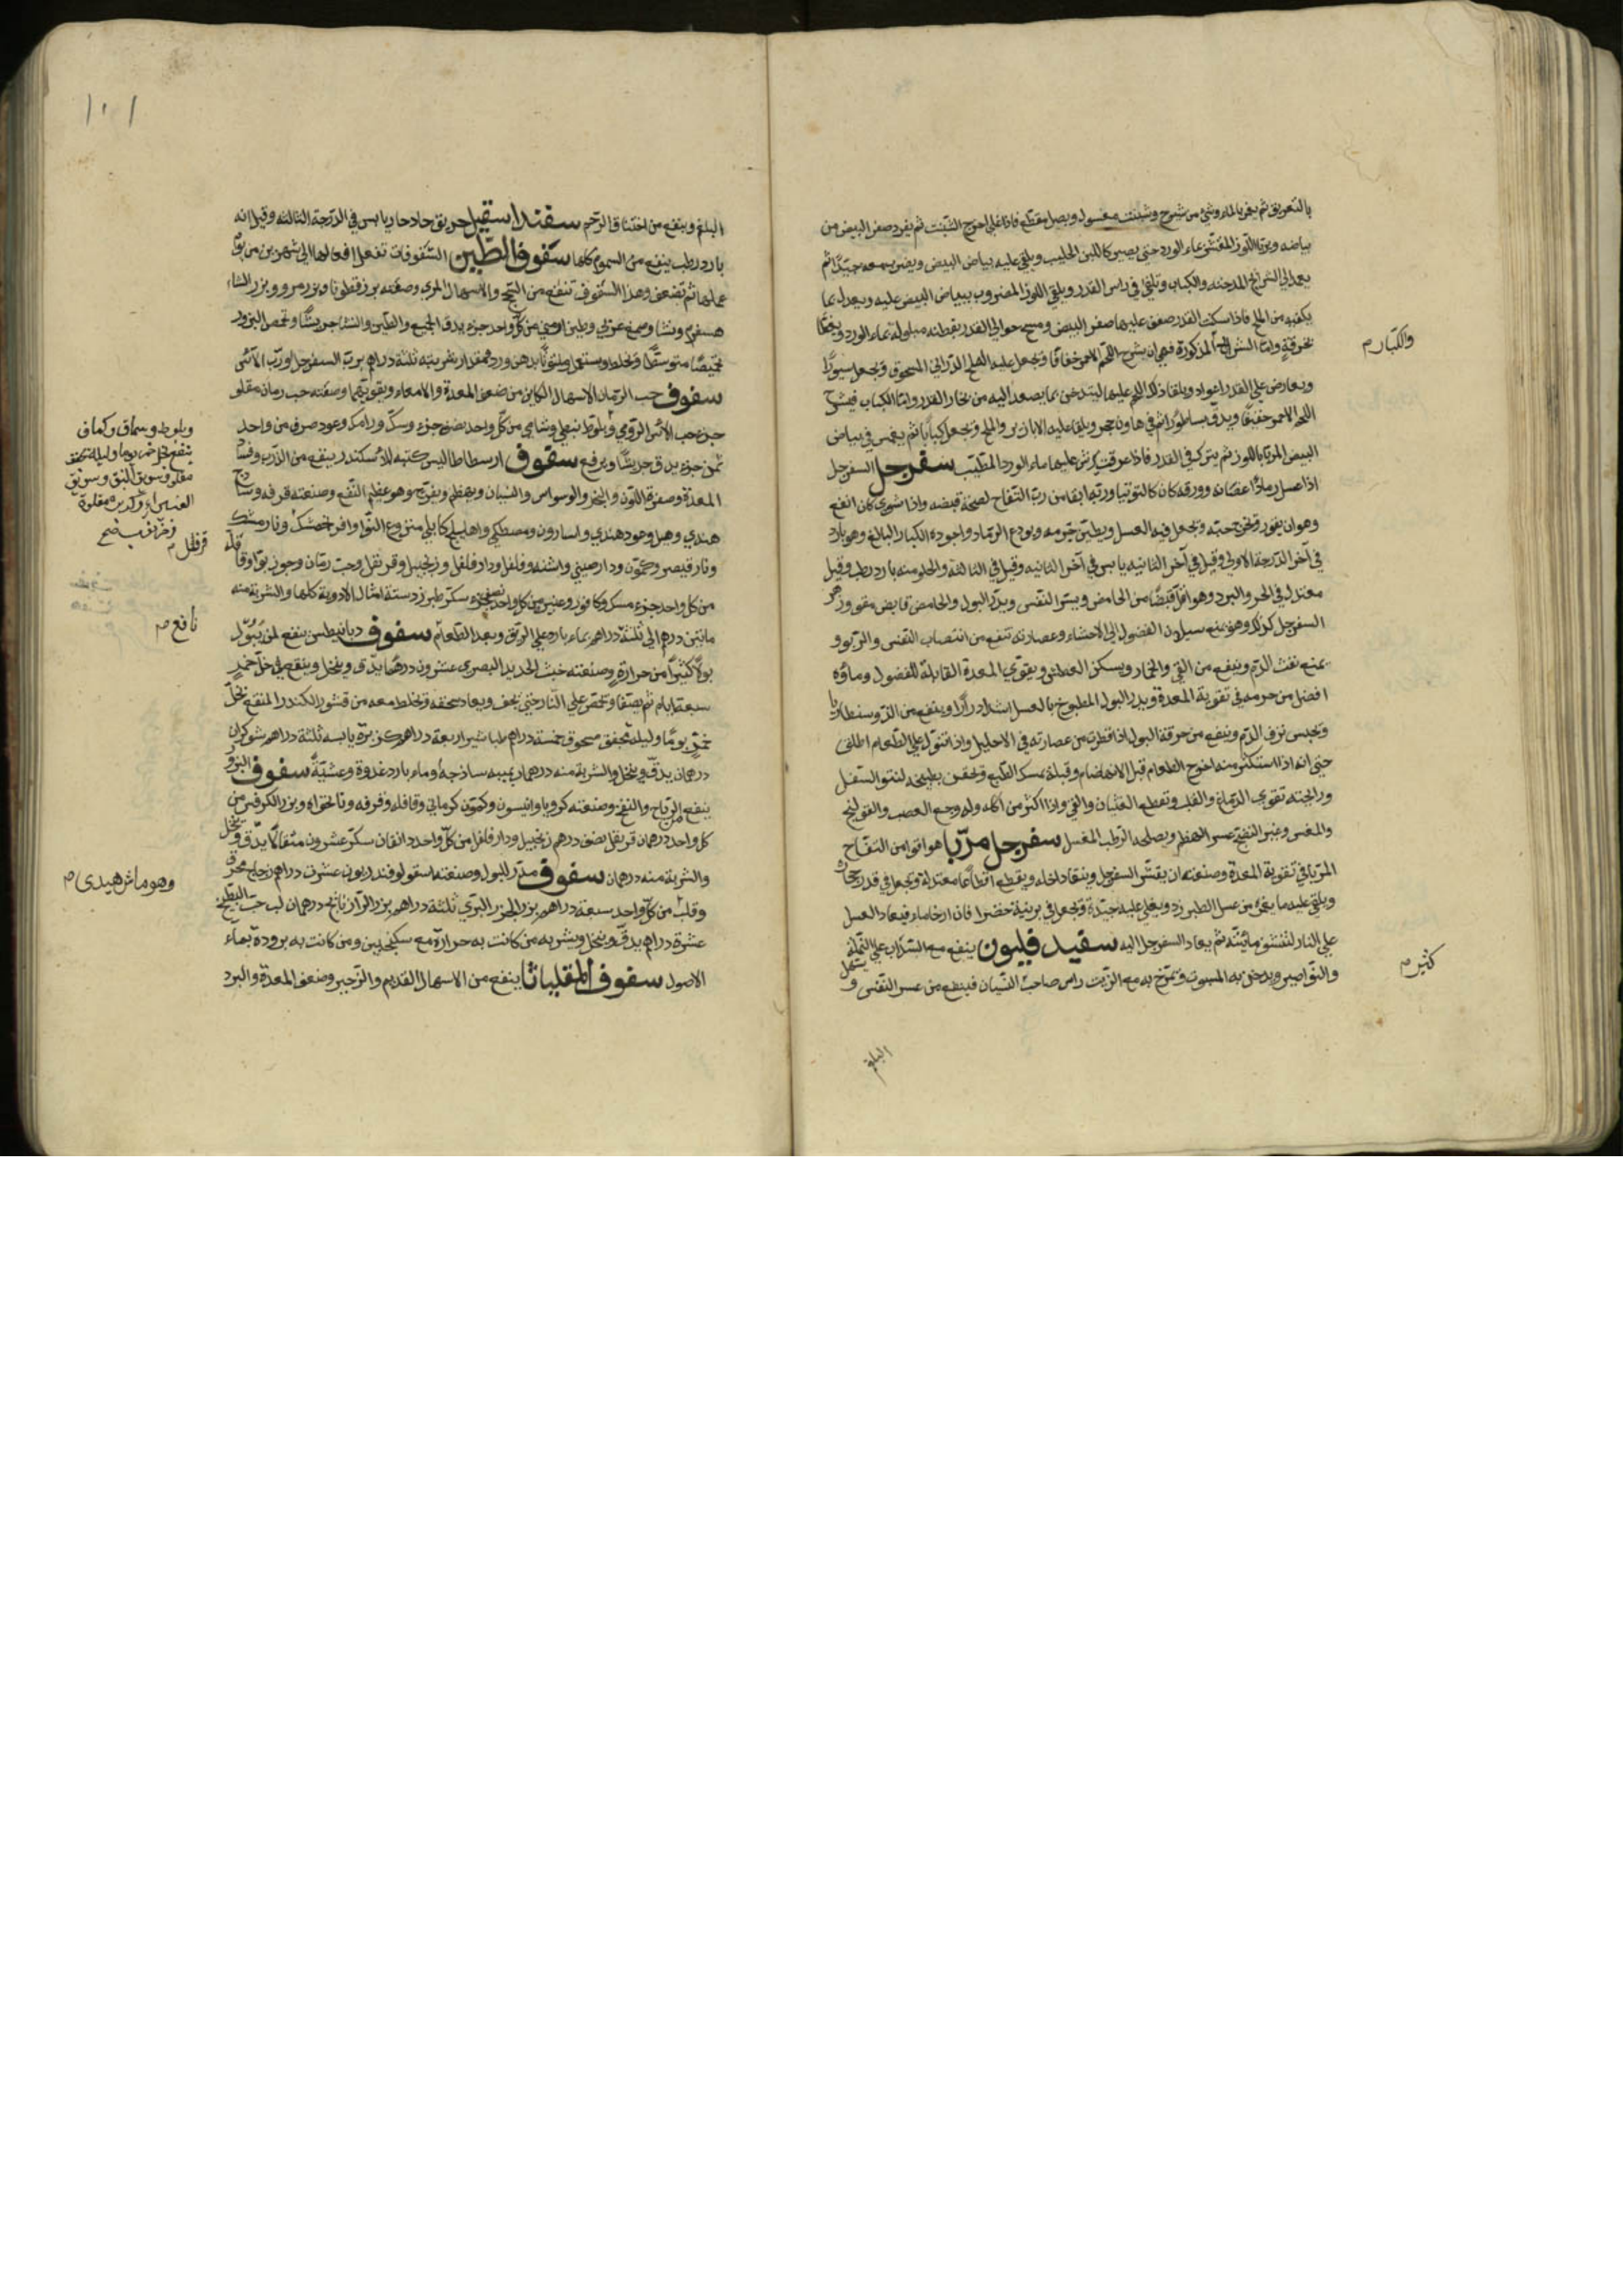 بالتعريق ثم يغمر بالماء وشئ من شيرج وشبنت مغسول وبصل مقطع فاذا غلى اخرج الشبت ثم يفرد صفر البيض من
بياضه ويربا اللوز المقشر بماء الورد حتى يصير كاللبن الحليب ويلقى عليه بياض البيض ويضرب معه جيدا ثم
يعمد الى الشرائح المدخنه والكباب وتلقى في راس القدر ويلقى اللوز المضروب ببياض البيض عليه ويعدل بما
يكفيه من الملح فاذا سكنت القدر صفف عليها صفر البيض ومسح حوالي القدر بقطنه مبلولة بماء الورد
بخرقة واما الشرائح المذكورة فهي ان يشرح اللحم الاحمر خفافا ويجعل عليه الملح الدراني المسحوق ويجعل سيورا
ويعارض على القدر اعواد ويلقا ذلك اللحم عليها ليتدخن بما يصعد اليه من بخار القدر واما الكباب فيشرح
اللحم الاحمر خفيفا ويدق بساطور ثم في هاون حجر ويلقا عليه الابازير والملح ويجعل كبابا ثم يغمس في بياض
البيض المربا باللوز ثم يترك في القدر فاذا عرقت يرش عليها ماء الورد المطيب سفرجل السفرجل
اذا غسل رماد اغصانه وورقه كان كالتوتيا وربه ابقا من رب التفاح لصحة قبضه واذا شوي كان انفع
وهو ان يقور وتخرج حبه ويجعل فيه العسل ويطين جرمه ويودع الرماد واجوده الكبار البالغ وهو بارد
في آخر الدرجة الاولى وقيل في آخر الثانيه يابس في آخر الثانيه وقيل في الثالثه والحلو منه بارد رطب وقيل
معتدل في الحر والبرد وهو اقل قبضا من الحامض ويسر النفس ويدر البول والحامض قابض مقو وزهر
السفرجل كذلك وهو يمنع سيلان الفضول الى الاحشاء وعصارته تنفع من انتصاب النفس والربو و
يمنع نفث الدم وينفع من القيء والخمار ويسكن العطش ويقوي المعدة القابلة للفضول وماؤه
افضل من جرمه في تقوية المعدة ويدر البول المطبوخ بالعسل اشد ادرارا وينفع من الدوسنطاريا
وتحبس نزف الدم وينفع من حرقة البول اذا قطرت من عصارته في الاحليل وان انتقل على الطعام اطلق
حتى انه اذا استكثر منه اخرج الطعام قبل الانهضام وقبله يمسك الطبع وتحقن بطبيخه لنتو السفل
ورائحته تقوي الدماغ والقلب وتقطع الغثيان والقيء واذا اكثر من اكله ولد وجع العصب والقولنج
والمغس وغير النضيج عسر الهضم ويصلحه الرطب المعسل سفرجل مربا هو اقوا من التفاح
المربا في تقوية المعدة وصنعته ان يقشر السفرجل وينقا داخله ويقطع اقطاعا معتدلة ويجعل في قدر حجارة
ويلقى عليه ما يغمره من عسل الطبرزد ويغلي عليه جيدة ويجعل في برنية خضرا فان ارخا ماء فيعاد العسل
على النار لتنشف مائيته ثم يعاد السفرجل اليه سفيد فليون ينفع مع السذاب على النملة
والنواصير ويدخن به المسبوت ويمرخ به مع الزيت راس صاحب النسيان فينفع من عسر النفس و يسهل
والكبار م
كثير م
البلغم
١٠١
البلغم وينفع من اختناق الرحم سفنداسقيل حريف حاد حار يابس في الدرجة الثالثه وقيل انه
بارد رطب ينفع من السموم كلها سفوف الطين السفوفات تفعل افعالها الى شهرين من يوم
عملها ثم تضعف وهذا السفوف تنفع من السحج والاسهال المري وصفته بزر قطونا وبزر مرو وبزر الشا
هسفرم ونشا وصمغ عربي وطين ارمني من كل واحد جزء يدق الجميع والطين والنشا جريشا وتحمص البزور
تحميصا متوسطا وتخلط وستعمل ملتوتا بدهن ورد مقدار شربته ثلثة دراهم برب السفرجل او رب الآس
سفوف حب الرمان الاسهال الكاين من ضعف المعدة والامعاء ويقويهما وصفته حب رمان مقلو
جزء حب الآس الرومي وبلوط نبطي وشامي من كل واحد نصف جزء وسك ورامك وعود صرف من واحد
ثمن جزء يدق جريشا ويرفع سفوف ارسطاطاليس كتبه للاسكندر ينفع من الذرب وفساد
المعدة وصفرة اللون والبخر والوسواس والنسيان ويهضم ويفرح وهو عظيم النفع وصنعته قرفه وساذج
هندي وهيل وعود هندي واسارون ومصطكي واهليلج كابلي منزوع النوا وافرنجمشك ونارمشك
ونارقيصر وكمون ودارصيني واشنه وفلفل ودارفلفل وزنجبيل وقرنفل وحب رمان وجوز بوا وقاقلة
من كل واحد جزء مسك وكافور وعنبر من كل واحد نصف جزء سكر طبرزد ستة امثال الادوية كلها والشربة منه
مابين درهم الى ثلثة دراهم بماء بارد على الريق وبعد الطعام سفوف ديانيطس ينفع لمن يبول
بولا كثيرا من حرارة وصنعته خبث الحديد البصري عشرون درهما يدق وينخل وينقع في خل خمر
سبعة ايام ثم يصفا وتحمص على النار حتى يجف ويعاد سحقه وتخلط معه من قشور الكندر المنقع بخل
خمر يوما وليلة مجفف مسحوق خمسة دراهم طباشير اربعة دراهم كزبرة يابسه ثلثة دراهم شوكران
درهمان يدق وينخل والشربة منه درهمان بميبه ساذجة او ماء بارد غدوة وعشية سفوف البزور
ينفع الرياح والنفخ وصنعته كرويا وانيسون وكمون كرماني وقاقله وقرفه ونانخواه وبزر الكرفس من
كل واحد درهمان قرنفل نصف درهم زنجبيل ودارفلفل من كل واحد دانقان سكر عشرون مثقالا يدق وينخل
والشربة منه درهمان سفوف مدر للبول وصنعته اسقولوقندريون عشرة دراهم زجاج محرق
وقلت من كل واحد سبعة دراهم بزر الجزر البري ثلثة دراهم بزر الرازيانج درهمان لب حب البطيخ
عشرة دراهم يدق وينخل ويشربه من كانت به حرارة مع سكنجبين ومن كانت به برودة بماء
الاصول سفوف المقلياثا ينفع من الاسهال القديم والزحير وضعف المعدة والبرد
وبلوط وسماق وكماف
ينقع بخل خمر يوما وليلة مجفف
مقلو وسويق النبق وسويق
الغبيراء وكزبرة مقلوة
وخرنوب
قرنفل م
نافع م
وهو ماش هندي م